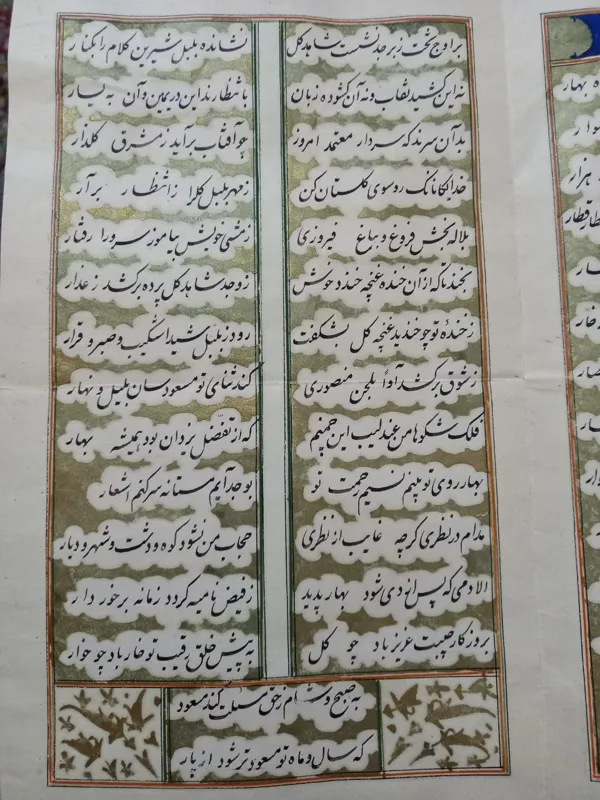 بر اوج تخت زبرجد نشست شاهد گل
نشانده بلبل شیرین کلام را بکنار
نه این کشید نقاب و نه آن گشوده زبان
بانتظار نداین در یمین و آن به یسار
بدآن سرند که سردار معتمد امروز
چو آفتاب برآید ز مشرق گلدار
خدایکانا یک ره سوی گلستان کن
ز مهر بلبل و گل را ز انتظار برآر
بلاله بخش فروغ و بباغ فیروزی
ز مشی خویش بیاموز سرو را رفتار
بخند تا که از آن خنده غنچه خندد خوش
ز وجد شاهد گل پرده برکشد ز عذار
ز خندهٔ تو چو خندید غنچه گل بشکفت
رود ز بلبل شیدا شکیب و صبر و قرار
ز شوق برکشد آوا بلحن منصوری
کند ثنای تو مسعودسان بلیل و نهار
فلک شکوها من عندلیب این چمنم
که از تفضل یزدان بود همیشه بهار
بهار روی تو بینم نسیم رحمت تو
بوجد آیم مستانه سر کنم اشعار
مدام در نظری گرچه غایب از نظری
حجاب من نشود کوه و دشت و شهر و دیار
الا دمی که پس از دی شود بهار پدید
ز فیض نامیه گردد زمانه برخوردار
بروزگار حبیبت عزیز باد چو گل
به پیش خلق رقیب تو خار باد چو خوار
به صبح و شام ز حق مسئلت کند مسعود
که سال و ماه تو مسعودتر شود از پار
ه بهار
هزار
قطار